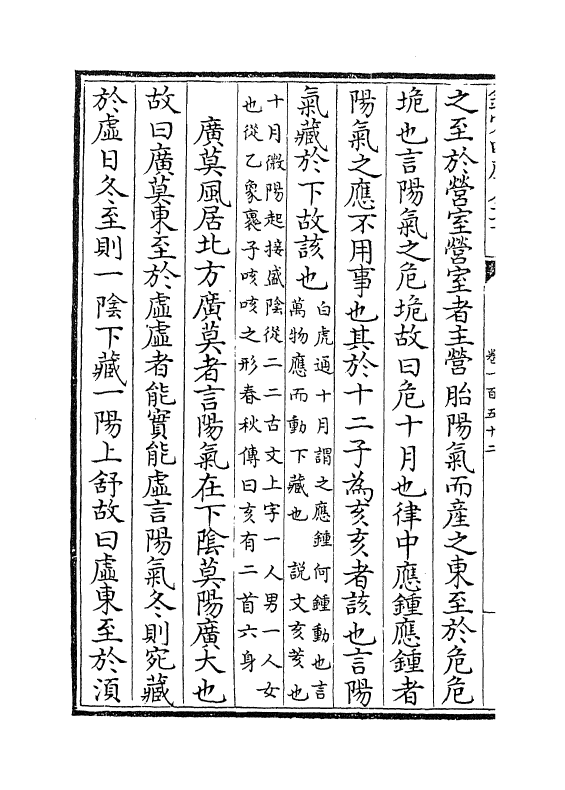 卷一百五十二
之至於營室營室者主營胎陽氣而産之東至於危危
垝也言陽氣之危垝故曰危十月也律中應鍾應鍾者
陽氣之應不用事也其於十二子為亥亥者該也言陽
氣藏於下故該也
白虎通十月謂之應鍾何鍾動也言
萬物應而動下藏也 說文亥荄也
十月微陽起接盛陰從二二古文上字一人男一人女
也從乙象裹子咳咳之形春秋傳曰亥有二首六身
廣莫風居北方廣莫者言陽氣在下陰莫陽廣大也
故曰廣莫東至於虛虛者能實能虛言陽氣冬則宛藏
於虛日冬至則一陰下藏一陽上舒故曰虛東至於湏